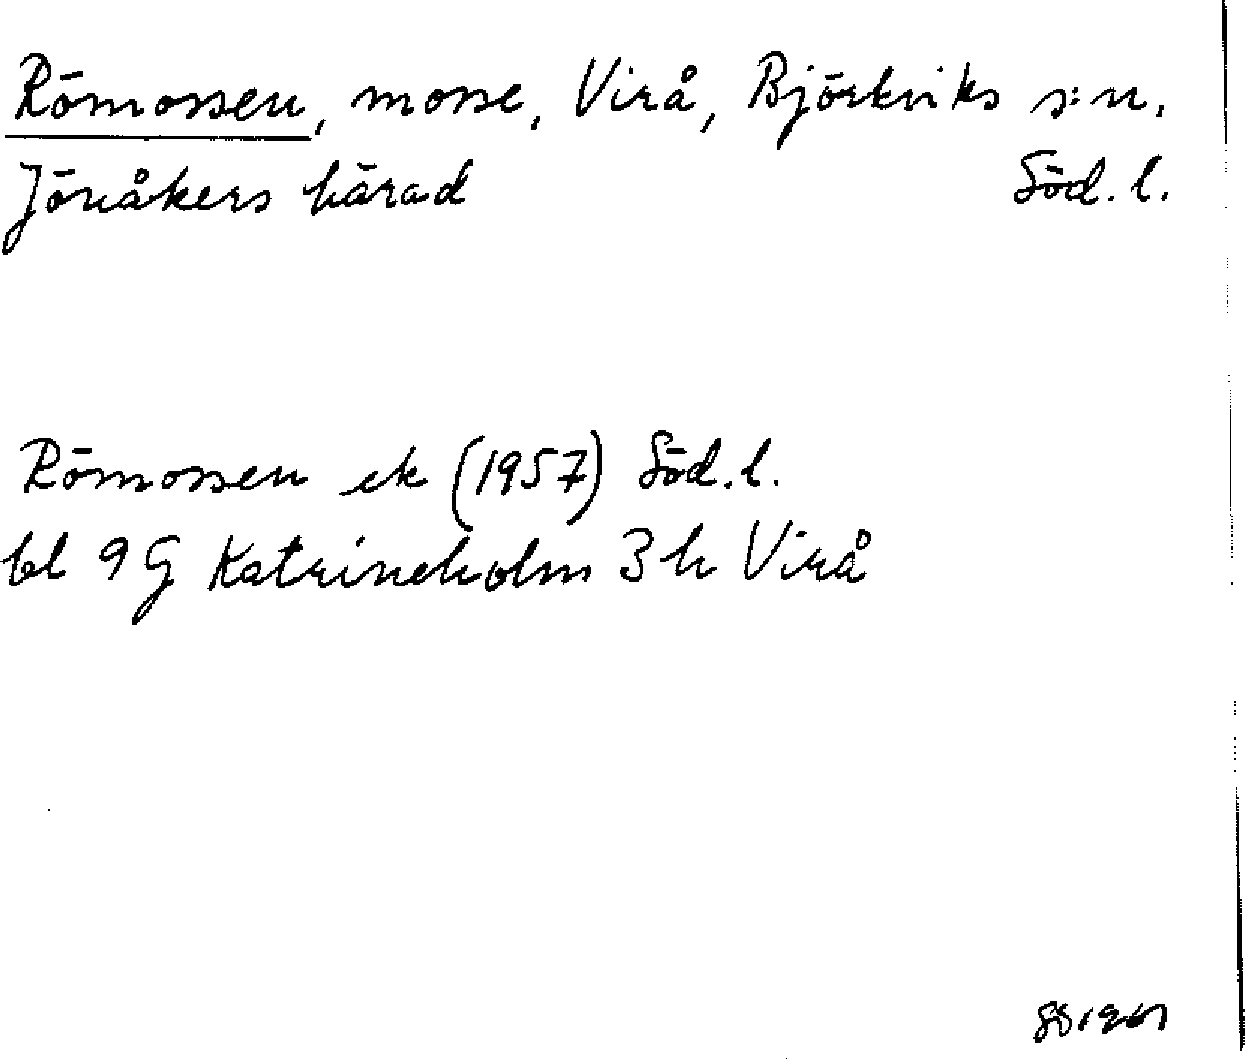 Römossen, mosse, Virå, Björkviks s:n,
Jönåkers härad Söd. l.
Römossen ek (1957) Söd. l.
bl 9 G Katrineholm 3 h Virå